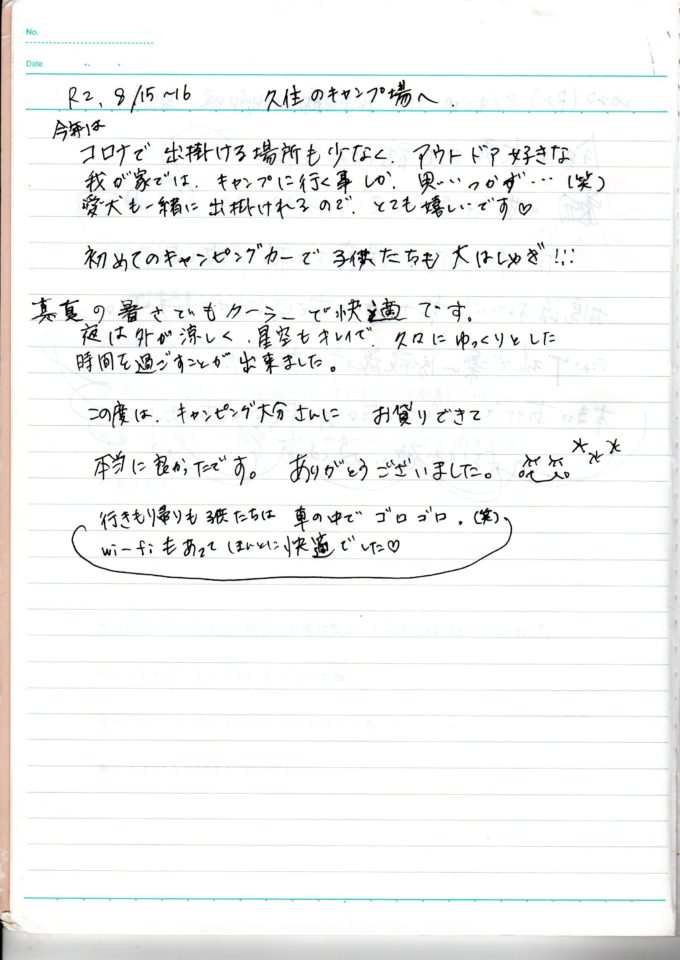 No.
Date
R2. 8/15~16 久住のキャンプ場へ.
今年は
コロナで 出掛ける場所も少なく、アウトドア好きな
我が家では、キャンプに行く事しか、思いつかず…(笑)
愛犬も一緒に出掛けれるので、とても嬉しいです♡
初めてのキャンピングカーで 子供たちも 大はしゃぎ!!!
真夏の暑さでもクーラーで快適です。
夜は外が涼しく、星空もキレイで、久々にゆっくりとした
時間を過ごすことが出来ました。
この度は、キャンピング大分さんに お貸りできて
本当に良かったです。 ありがとうございました。
行きもり帰りも子供たちは 車の中で ゴロゴロ。(笑)
wi-fiもあって ほんとに快適でした♡